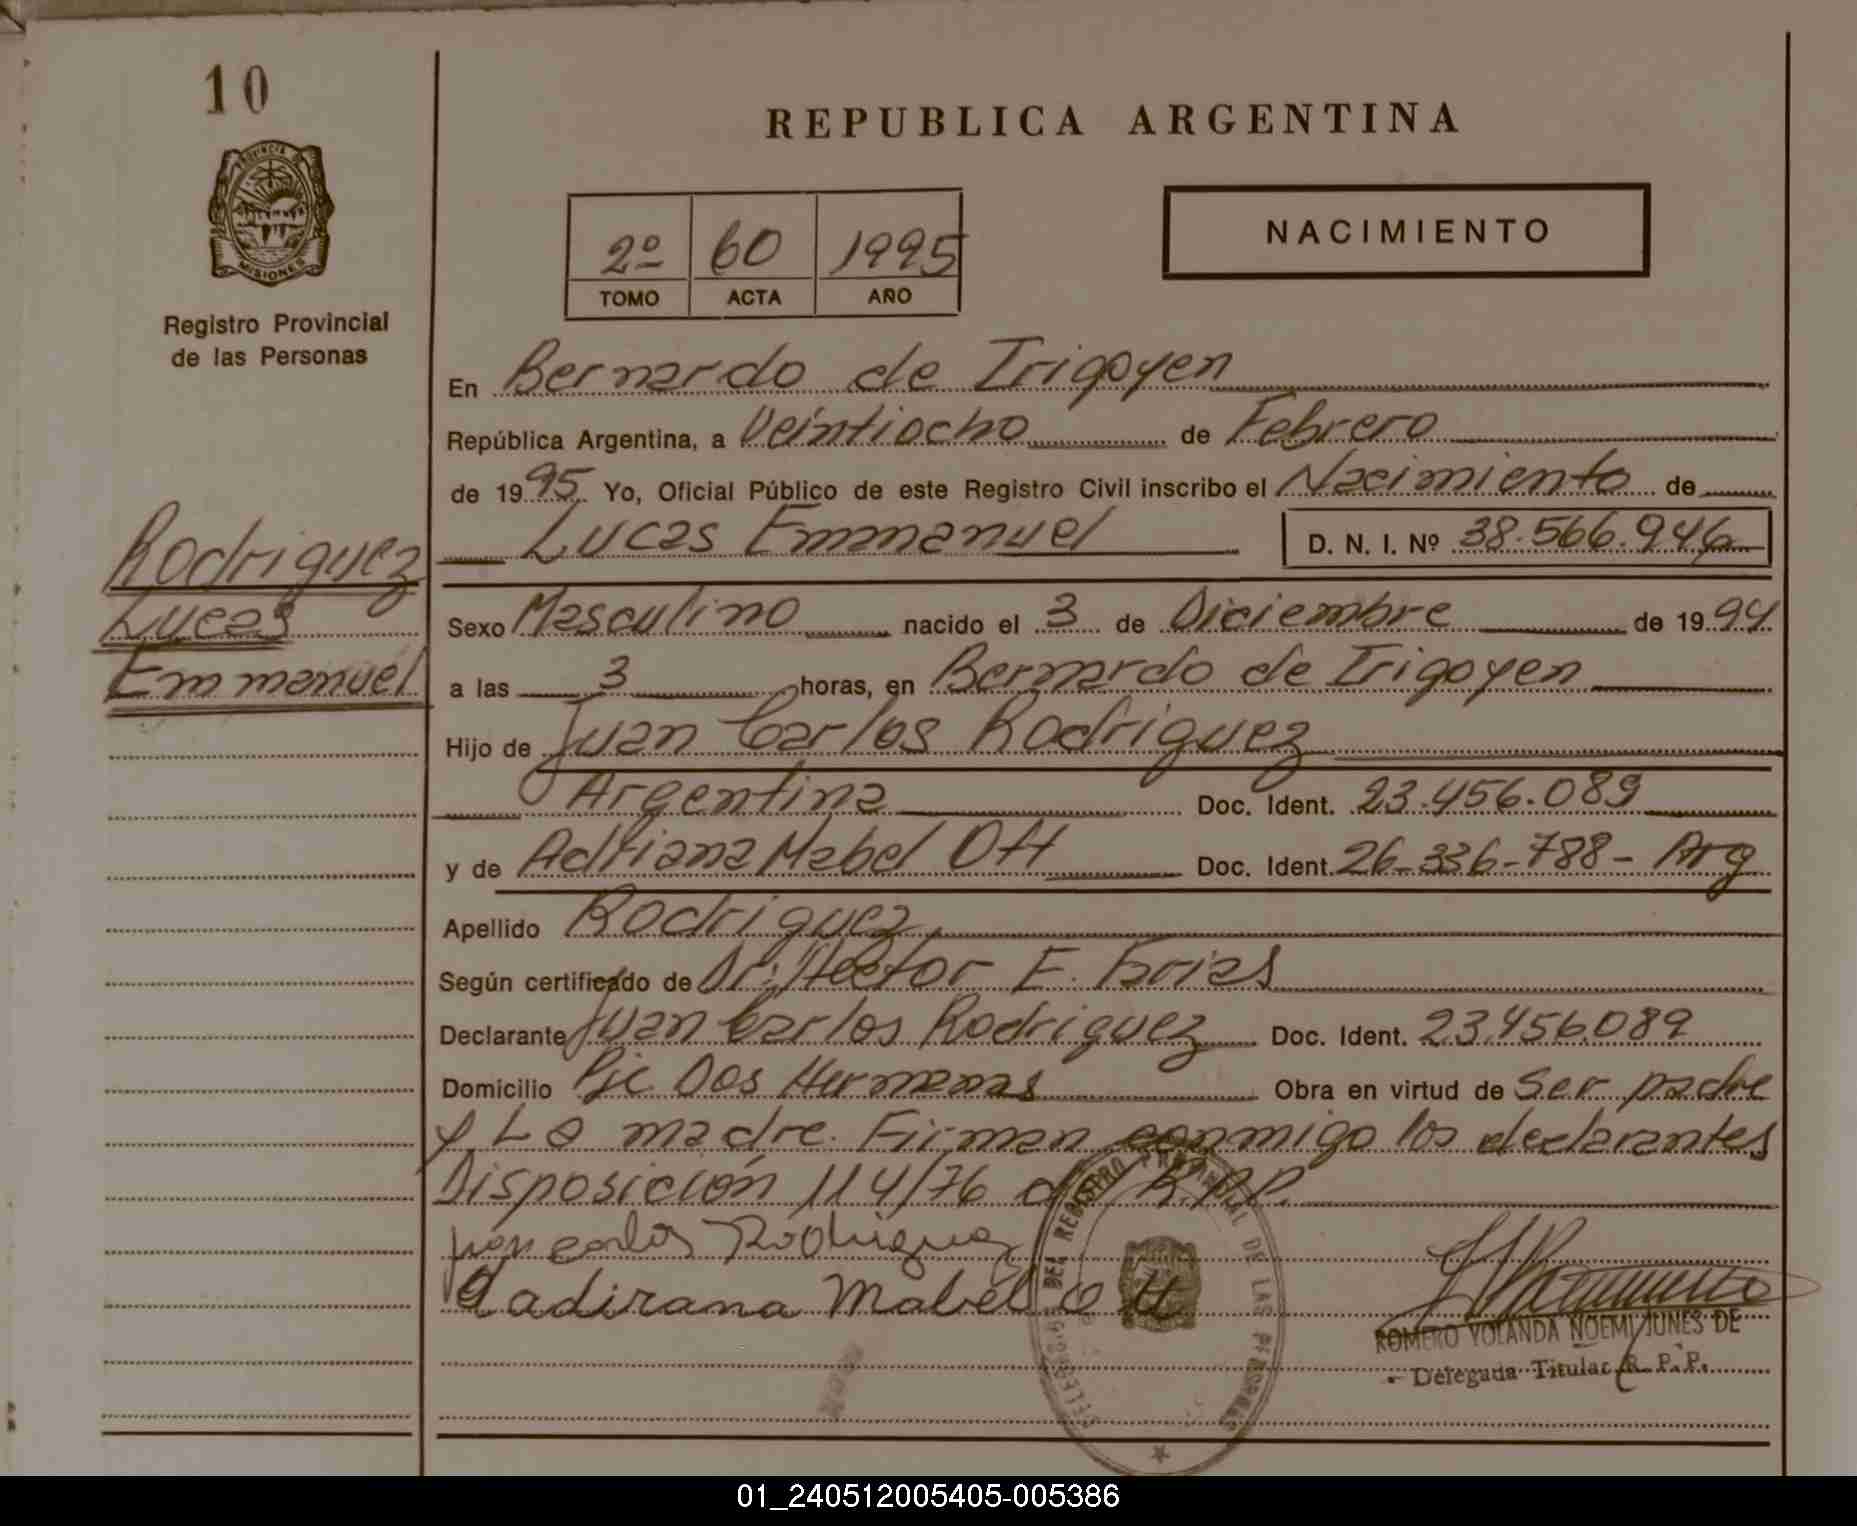 10
REPUBLICA ARGENTINA
PROVINCIA DE
MISIONES
Registro Provincial
de las Personas
2º 60 1995
TOMO ACTA AÑO
NACIMIENTO
En Bernardo de Irigoyen
República Argentina, a Veintiocho de Febrero
de 1995 Yo, Oficial Público de este Registro Civil inscribo el Nacimiento de
Lucas Emmanuel D. N. I. Nº 38.566.946
Rodriguez
Lucas
Emmanuel
Sexo Masculino nacido el 3 de Diciembre de 1994
a las 3 horas, en Bernardo de Irigoyen
Hijo de Juan Carlos Rodriguez
Argentina Doc. Ident. 23.456.089
y de Adriana Mabel Ott Doc. Ident. 26-336-788- Arg
Apellido Rodriguez
Según certificado de Dr: Hector E. Farias
Declarante Juan Carlos Rodriguez Doc. Ident. 23.456.089
Domicilio Pje. Dos Hermanas Obra en virtud de Ser padre
y La madre. Firman conmigo los declarantes
Disposición 114/76 del R.P.P.
juan carlos Rodriguez
adirana Mabel Ott
DEL REGISTRO PROVINCIAL DE LAS PERSONAS
ROMERO YOLANDA NOEMI JUNES DE
Delegada Titular R. P. P.
01_240512005405-005386